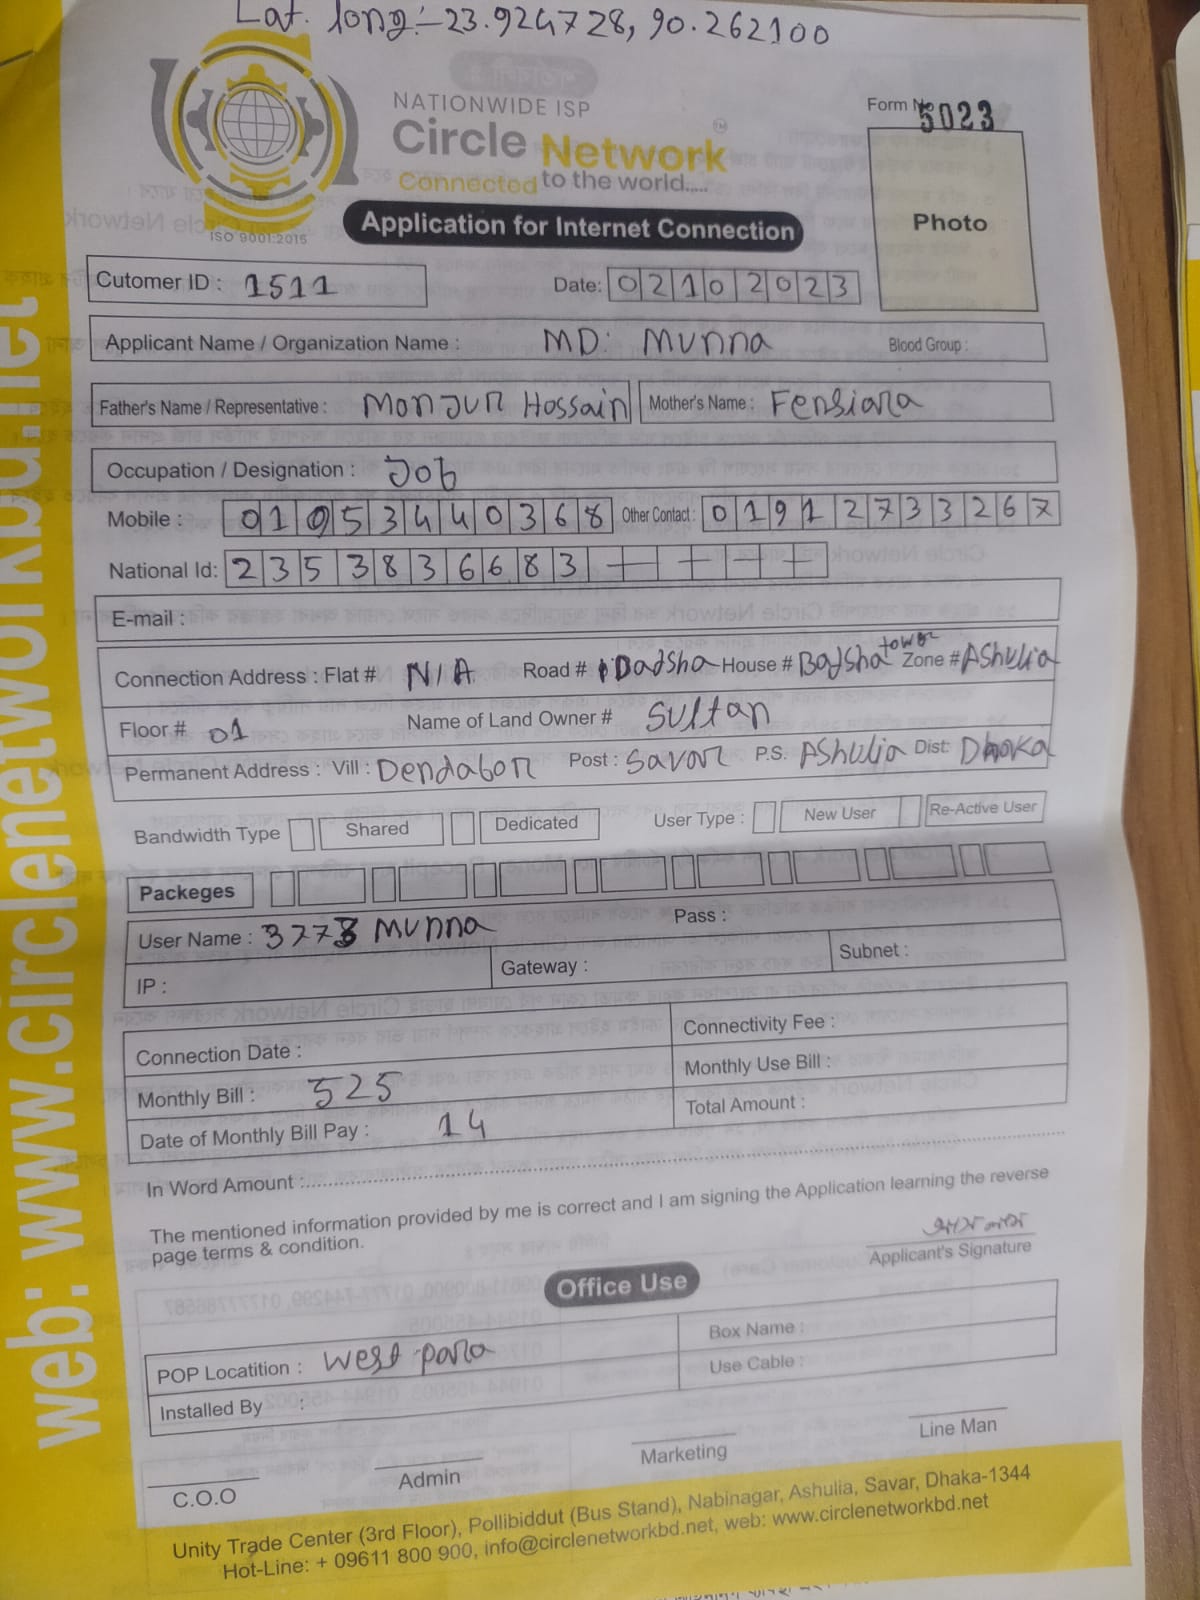 Lat. long:-23.924728, 90.262100
NATIONWIDE ISP
Circle Network
Connected to the world.....
ISO 9001:2015
Form No 5023
Photo
Application for Internet Connection
Cutomer ID : 1511 Date: 02102023
Applicant Name / Organization Name : MD: Munna Blood Group :
Father's Name / Representative : Monjur Hossain Mother's Name : Fensiara
Occupation / Designation : Job
Mobile : 01953440368 Other Contact : 01912733267
National Id: 2353836683
E-mail :
Connection Address : Flat # N/A Road # Badsha House # Badsha tower Zone # AShulia
Floor # 01 Name of Land Owner # Sultan
Permanent Address : Vill : Dendabor Post : Savar P.S. AShulia Dist: Dhaka
Bandwidth Type Shared Dedicated User Type : New User Re-Active User
Packeges
User Name : 3773 Munna Pass :
IP : Gateway : Subnet :
Connection Date : Connectivity Fee :
Monthly Bill : 525 Monthly Use Bill :
Date of Monthly Bill Pay : 14 Total Amount :
In Word Amount :
The mentioned information provided by me is correct and I am signing the Application learning the reverse
page terms & condition.
Applicant's Signature
Office Use
POP Locatition : West para Box Name :
Installed By : Use Cable :
C.O.O Admin Marketing Line Man
Unity Trade Center (3rd Floor), Pollibiddut (Bus Stand), Nabinagar, Ashulia, Savar, Dhaka-1344
Hot-Line: + 09611 800 900, info@circlenetworkbd.net, web: www.circlenetworkbd.net
web: www.circlenetworkbd.net